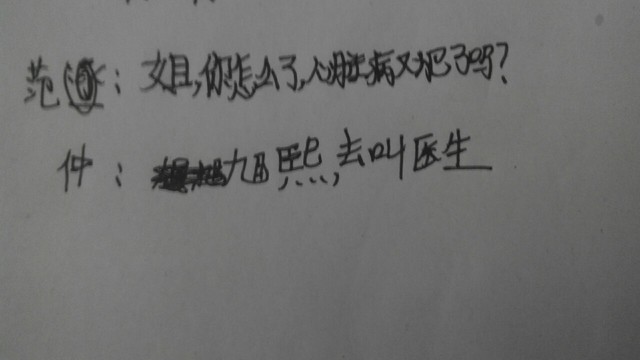 范：姐,你怎么了,心脏病又犯了吗?
仲：旭熙,去叫医生